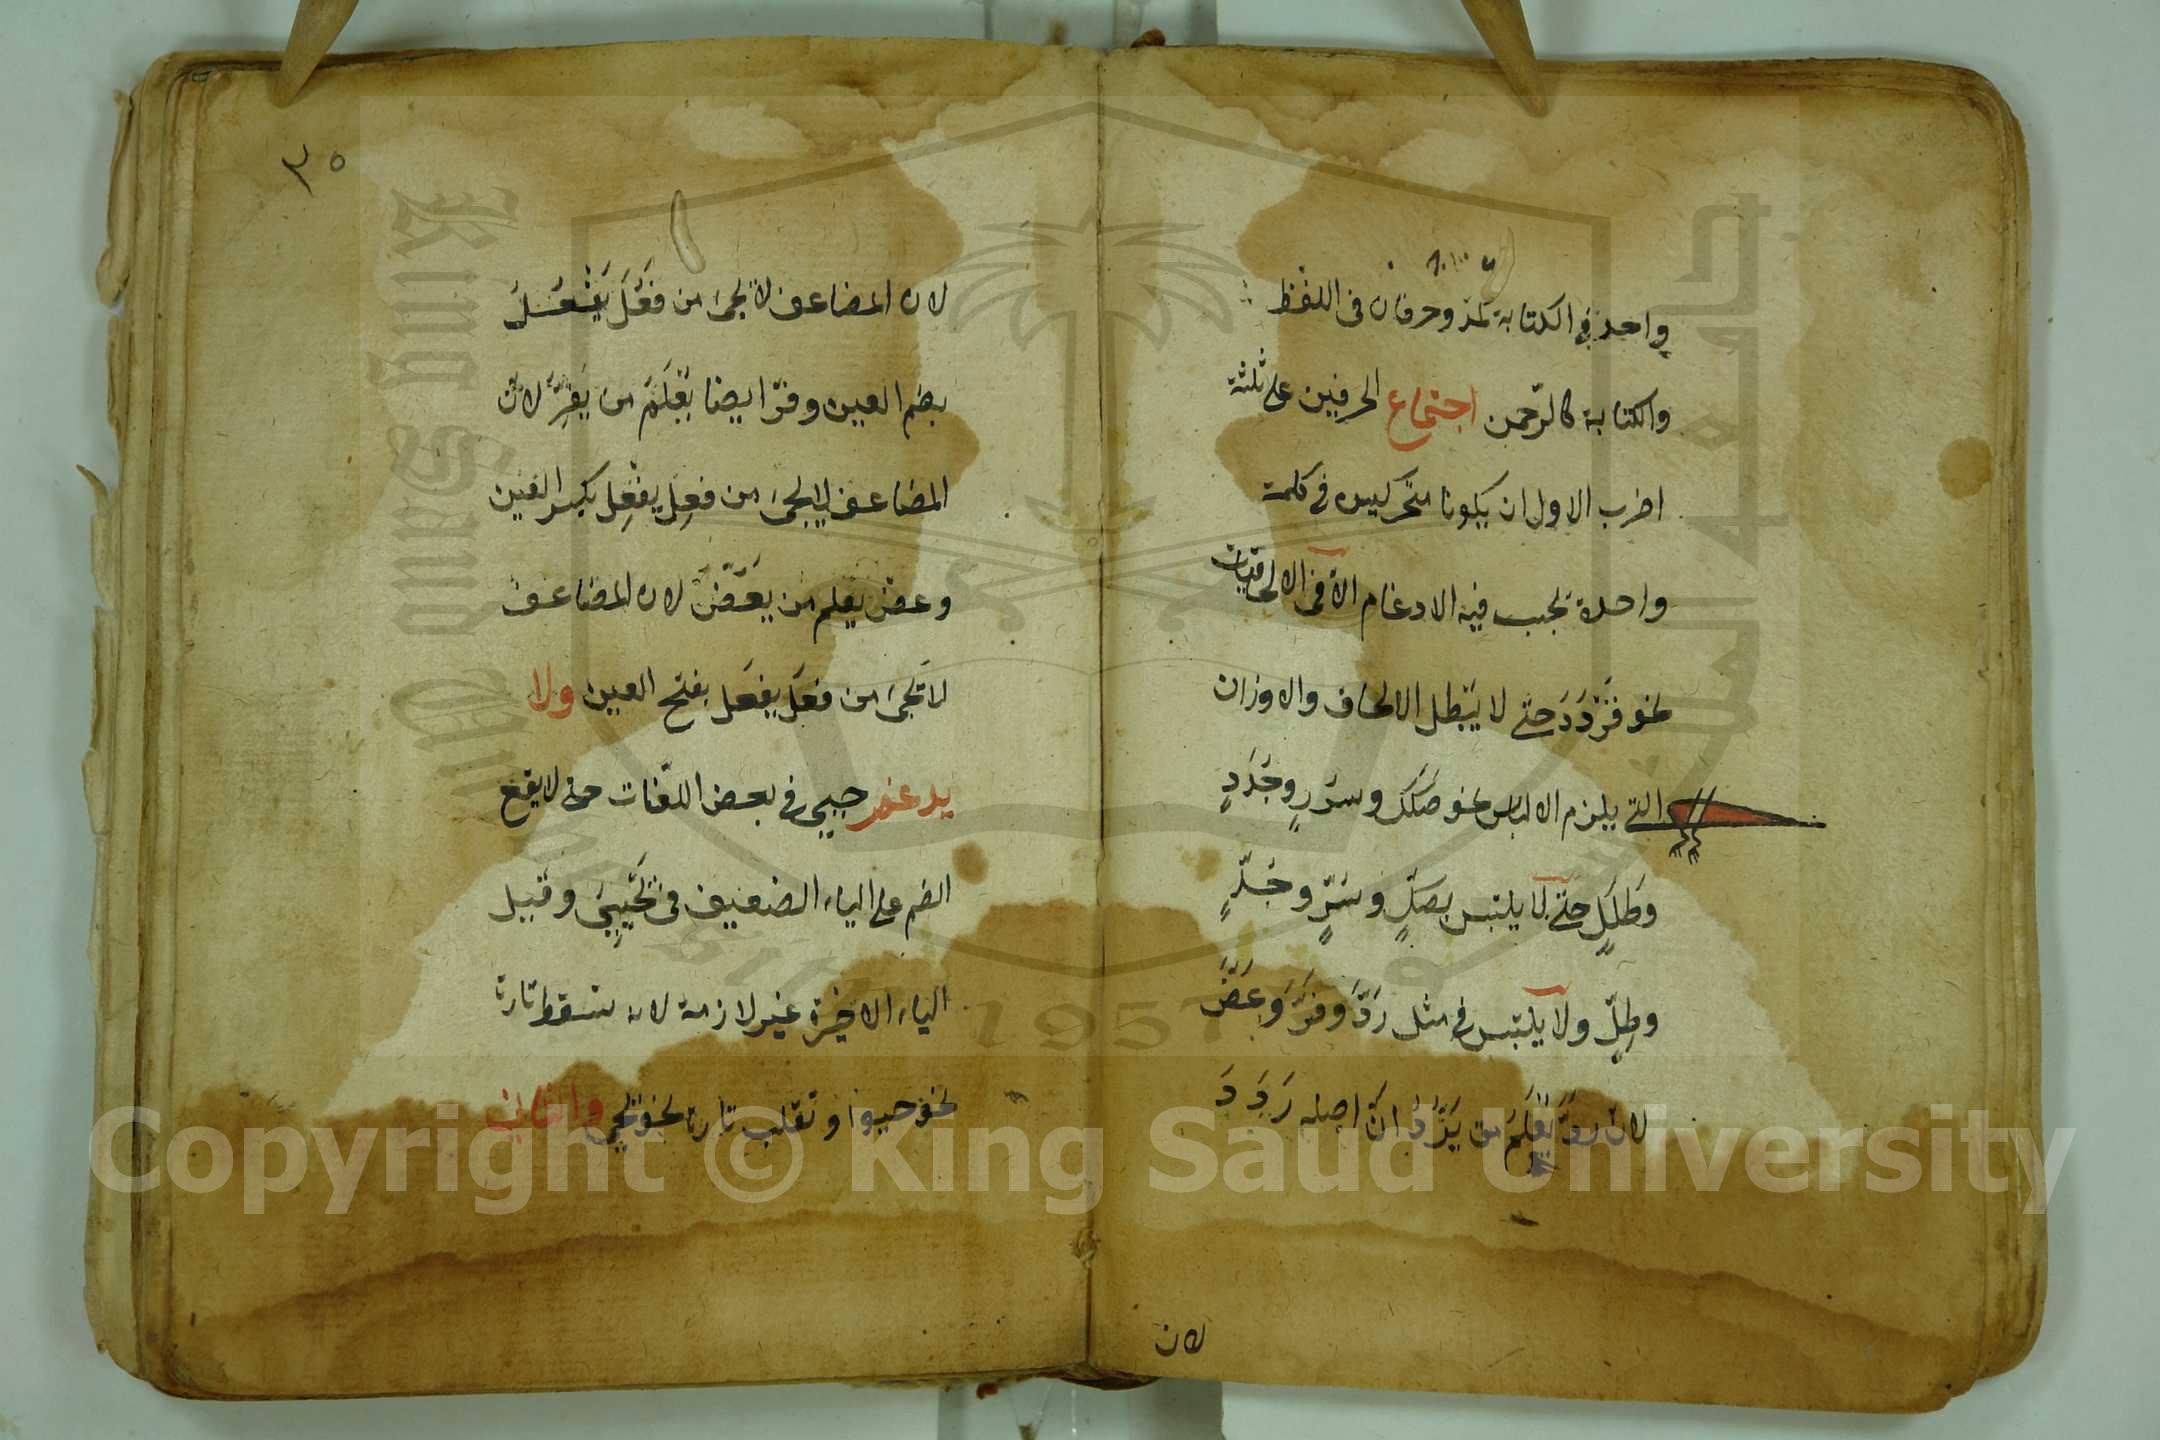 واحد في الكتابة كمدّ وحرفان في اللفظ
والكتابة كالرّحمن اجتماع الحرفين على ثلثة
اضرب الاول ان يكونا متحركين في كلمة
واحدة يجب فيه الادغام الّا في الالحاقيات
نحو قَرْدَدَ حتّى لا يَبْطل الالحاق والاوزان
التي يلزم الالتباس نحو صَكَك وسُرُرٍ وجُدَدٍ
وطَلَلٍ حتّى لا يلتبس بصكٍّ وسُرٍّ وجُدٍّ
وطلٍّ ولا يلتبس في مثل رَدَّ وفَرَّ وعَضَّ
لانّ ردّ يُعْلَمُ من يَرُدُّ انّ اصله رَدَدَ
لان
٣٥
لان المضاعف لا يجئ من فَعُلَ يَفْعُلُ
بضم العين وفرّ ايضا يُعْلَمُ من يَفِرُّ لانّ
المضاعف لا يجئ من فعِل يفعِل بكسر العين
وعضّ يعلم من يَعَضُّ لان المضاعف
لا يجئ من فعَل يفعَل بفتح العين ولا
يدغم حيي في بعض اللّغات حتى لا يقع
الضم على الياء الضعيف في يحيي وقيل
الياء الاخيرة غير لازمة لانه تسقط تارة
نحو حيوا وتقلب تارة نحو يحيى والثاني
King Saud University
جامعة الملك سعود
1957
Copyright © King Saud University